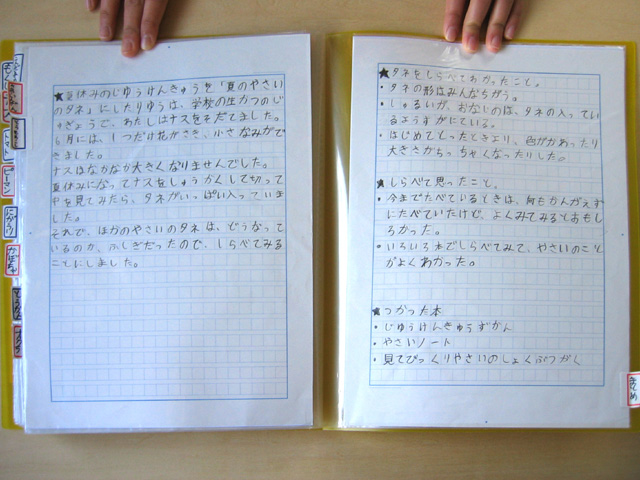 ★夏休みのじゆうけんきゅうを「夏のやさい
のタネ」にしたりゆうは、学校の生かつのじ
ゅぎょうで、あたしはナスをそだてました。
6月には、1つだけ花がさき、小さなみがで
きました。
ナスはなかなか大きくなりませんでした。
夏休みになってナスをしゅうかくして切って
中を見てみたら、タネがいっぱい入っていま
した。
それで、ほかのやさいのタネは、どうなって
いるのか、ふしぎだったので、しらべてみる
ことにしました。
トマト
ピーマン
にがうり
かぼちゃ
★タネをしらべてわかったこと。
・タネの形はみんなちがう。
・しゅるいが、おなじのは、タネの入ってい
るようすがにている。
・はじめてとったときより、色がかわったり
大きさがちっちゃくなったりした。
★しらべて思ったこと。
・今までたべているときは、何もかんがえず
にたべていたけど、よくみてみるとおもし
ろかった。
・いろいろ本でしらべてみて、やさいのこと
がよくわかった。
★つかった本
・じゆうけんきゅうずかん
・やさいノート
・見てびっくりやさいのしょくぶつがく
まとめ